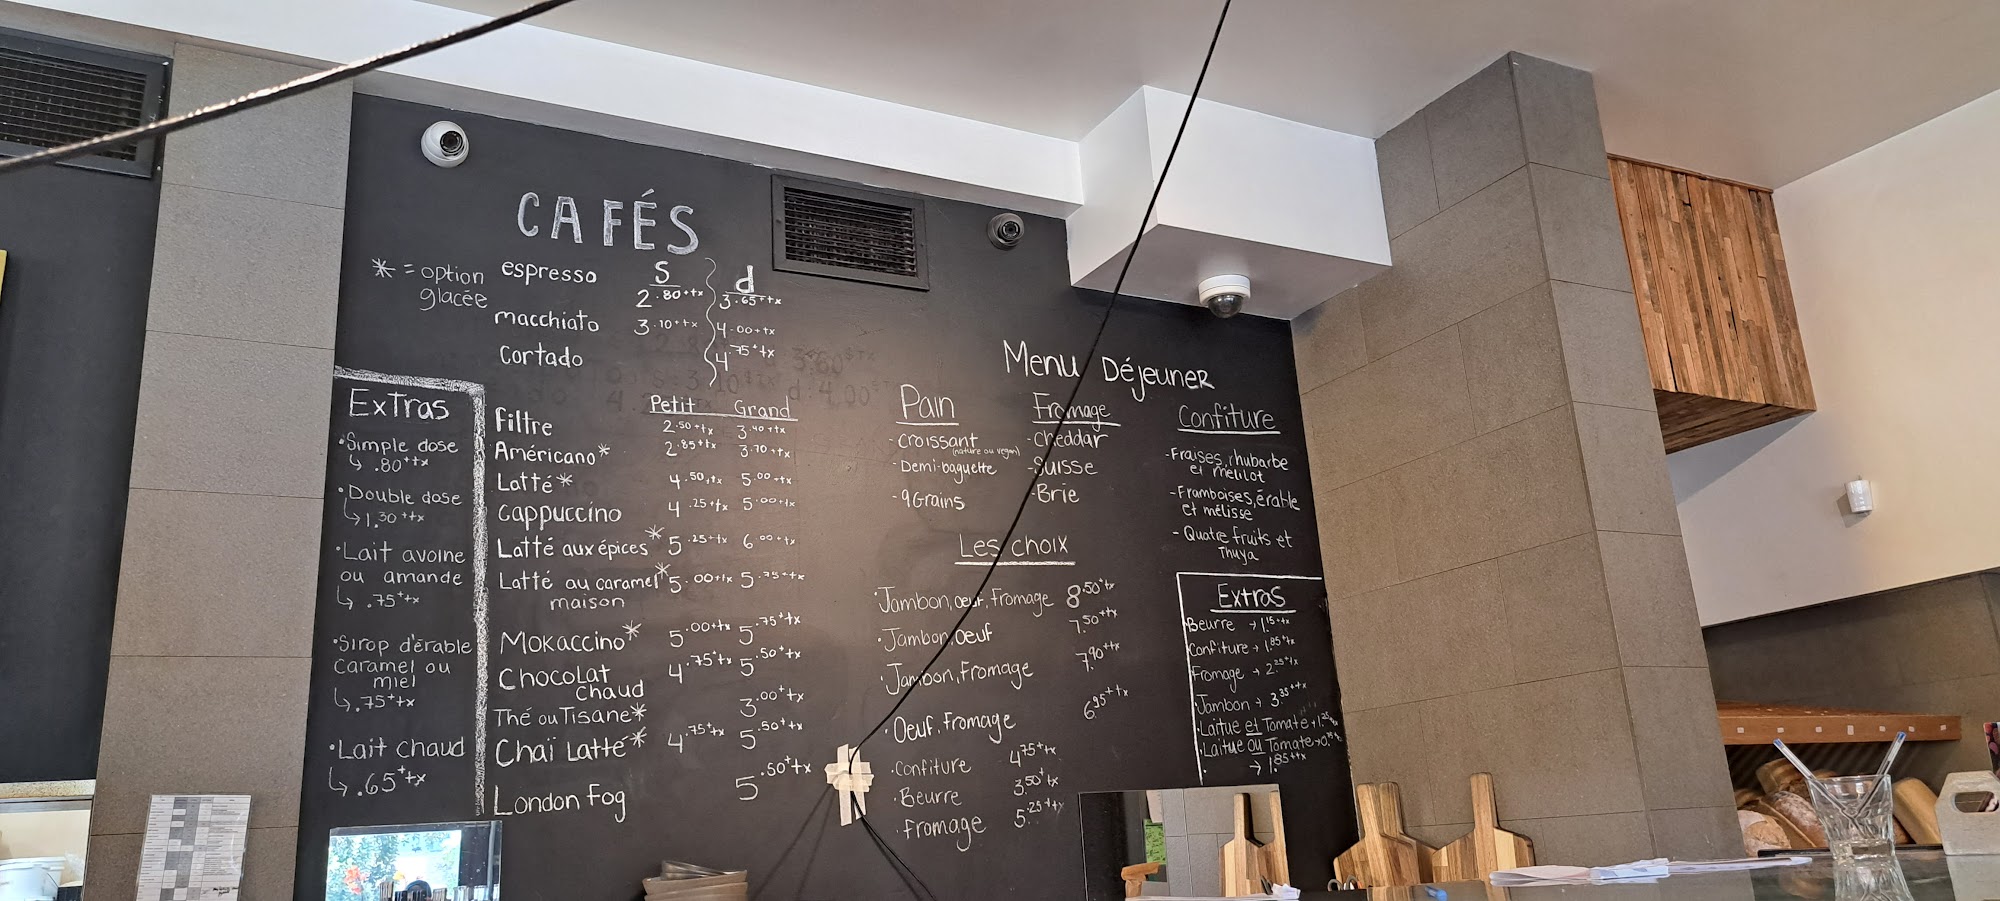 CAFÉS
* = option glacée
s d
espresso 2.80+tx 3.65+tx
macchiato 3.10+tx 4.00+tx
cortado 4.75+tx
Extras
• Simple dose
↳ .80+tx
• Double dose
↳ 1.30+tx
• Lait avoine
ou amande
↳ .75+tx
• Sirop d'érable
caramel ou
miel
↳ .75+tx
• Lait chaud
↳ .65+tx
Petit Grand
Filtre 2.50+tx 3.40+tx
Américano* 2.85+tx 3.70+tx
Latté* 4.50+tx 5.00+tx
Cappuccino 4.25+tx 5.00+tx
Latté aux épices* 5.25+tx 6.00+tx
Latté au caramel* 5.00+tx 5.75+tx
maison
Mokaccino* 5.00+tx 5.75+tx
Chocolat 4.75+tx 5.50+tx
chaud
Thé ou Tisane* 3.00+tx
Chaï Latté* 4.75+tx 5.50+tx
London Fog 5.50+tx
Menu Déjeuner
Pain
- croissant
(nature ou vegan)
- Demi-baguette
- 9 Grains
Fromage
- Cheddar
- Suisse
- Brie
Confiture
- Fraises, rhubarbe
et mélilot
- Framboises, érable
et mélisse
- Quatre fruits et
Thuya
Les choix
• Jambon, oeuf, fromage 8.50+tx
• Jambon, oeuf 7.50+tx
• Jambon, fromage 7.90+tx
• Oeuf, fromage 6.95+tx
• Confiture 4.75+tx
• Beurre 3.50+tx
• fromage 5.25+tx
Extras
Beurre → 1.15+tx
Confiture → 1.85+tx
Fromage → 2.25+tx
• Jambon → 3.35+tx
• Laitue et Tomate
• Laitue ou Tomate
→ 1.85+tx